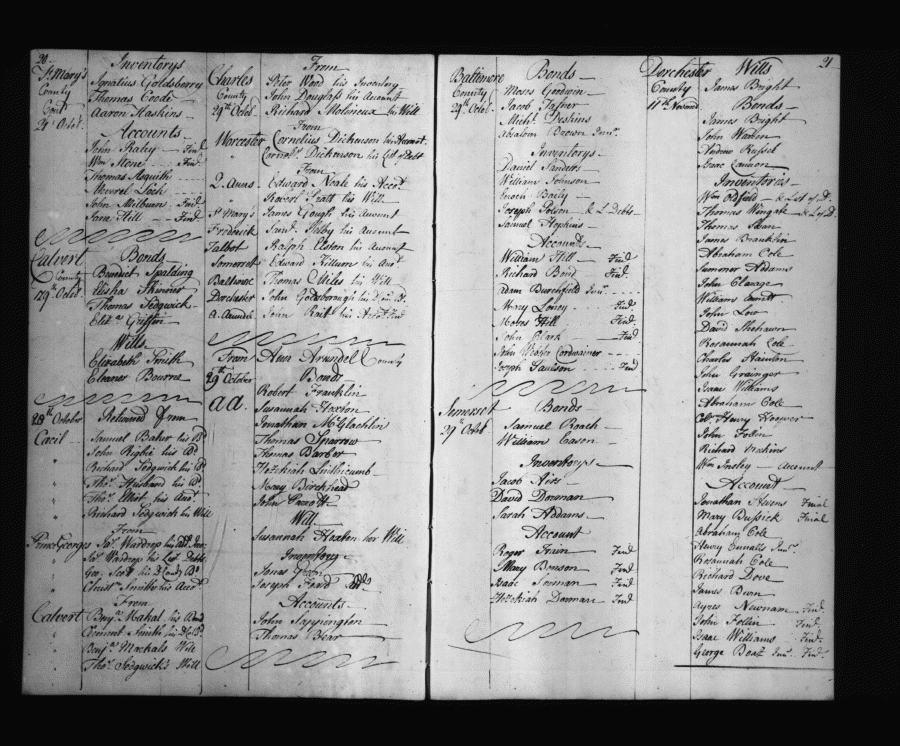 20
St Mary's
County
29 Octbr.
Inventorys
Ignatius Goldsberry
Thomas Coode
Aaron Haskins
Accounts
John Raley - Find
Wm Stone - Find
Thomas Asquith
John Milburn Find
Jane Hill - Find
Calvert
County
29th Octbr.
Bonds
Benedict Spalding
Elisha Skinner
Thomas Sedgwick
Griffin
Wills
Elizabeth Smith
Eleaner Bourne
28th October
Returned from
Cæcil
Samuel Baker his Bd
John Rigbie his Bd
Richard Sedgwick his Bd
Thos. Husband his Bd
Thos. Elliot his
Richard Sedgwick his Will
From
Prince Georges
Jas. Wardrop his
Jas. Wardrop his List Debts
Geo. Scott his
Smith his
From
Calvert
Benja. Makal his Bond
Clement Smith his
Benja. Mackals Will
Thos. Sedgwick's Will
Charles
County
29th Octbr.
From
Peter Wood his Inventory
John Douglass his Account
Richard Molineux his Will
From
Worcester
Cornelius Dickenson his Account
Cornels. Dickenson his List of Debts
From
Q. Anns - Edward Neale his Acct
Robert Pratt his Will
St Mary's - James Gough his Account
Fredrick - his Account
Talbot - Ralph Elston his Account
Somerset - Edward Killum his
Baltimore - Thomas Miles his Will
Dorchester - John Goldsborough his
A. Arundel - John Rait his
From Ann Arundel County
29th October
aa.
Bonds
Robert Franklin
Susannah Hoxton
Jonathan McGlachlin
Thomas Sparrow
Thomas Barber
Hezekiah Linthicumb
Mary Birckhead
John
Will
Susannah Hoxton her Will
Inventory
Jonas Green
Joseph Ford
Accounts
John Sappington
Thomas Bear
Baltimore
County
29th Octbr.
Bonds
Moses Goodwin
Jacob
Michl. Deskins
Absalom Brown Junr.
Inventorys
Daniel Sanders
William Johnson
Enoch Baily
Joseph Polson & L Debts
Samuel Hopkins
Accounts
William Hill - Find
Richard Bond - Find
Adam Burchfield Junr.
Mary Loney - Find
Moses Hill Find
John Clark Find
John Cordwainer
Joseph Find
Somerset
29th Octbr
Bonds
Samuel Roach
William Eason
Inventorys
Jacob Aires
David Dorman
Sarah Addams
Account
Roger Find
Mary Benson Find
Isaac Find
Hezekiah Dorman Find
21
Dorchester
County
11th Novemb
Wills
James Bright
Bonds
James Bright
John
Andrew Russel
Isaac Cannon
Inventories
Wm Oldfield & List of D.
Thomas Wingate & L of D.
Thomas Sloan
James Branklin
Abraham Cole
Summer Addams
John Clarage
Williams
John Low
David
Rosannah Cole
Charles Stainton
John Grainger
Isaac Williams
Abraham Cole
Colo. Henry Hooper
John
Richard Makins
Wm Insley - account
Account
Jonathan Final
Mary Bussick Final
Abraham Cole
Henry Ennalls Junr.
Rosannah Cole
Richard Dove
James Burn
Ayres Newnam Find
John Find
Isaac Williams Find
George Boaz Junr. Find